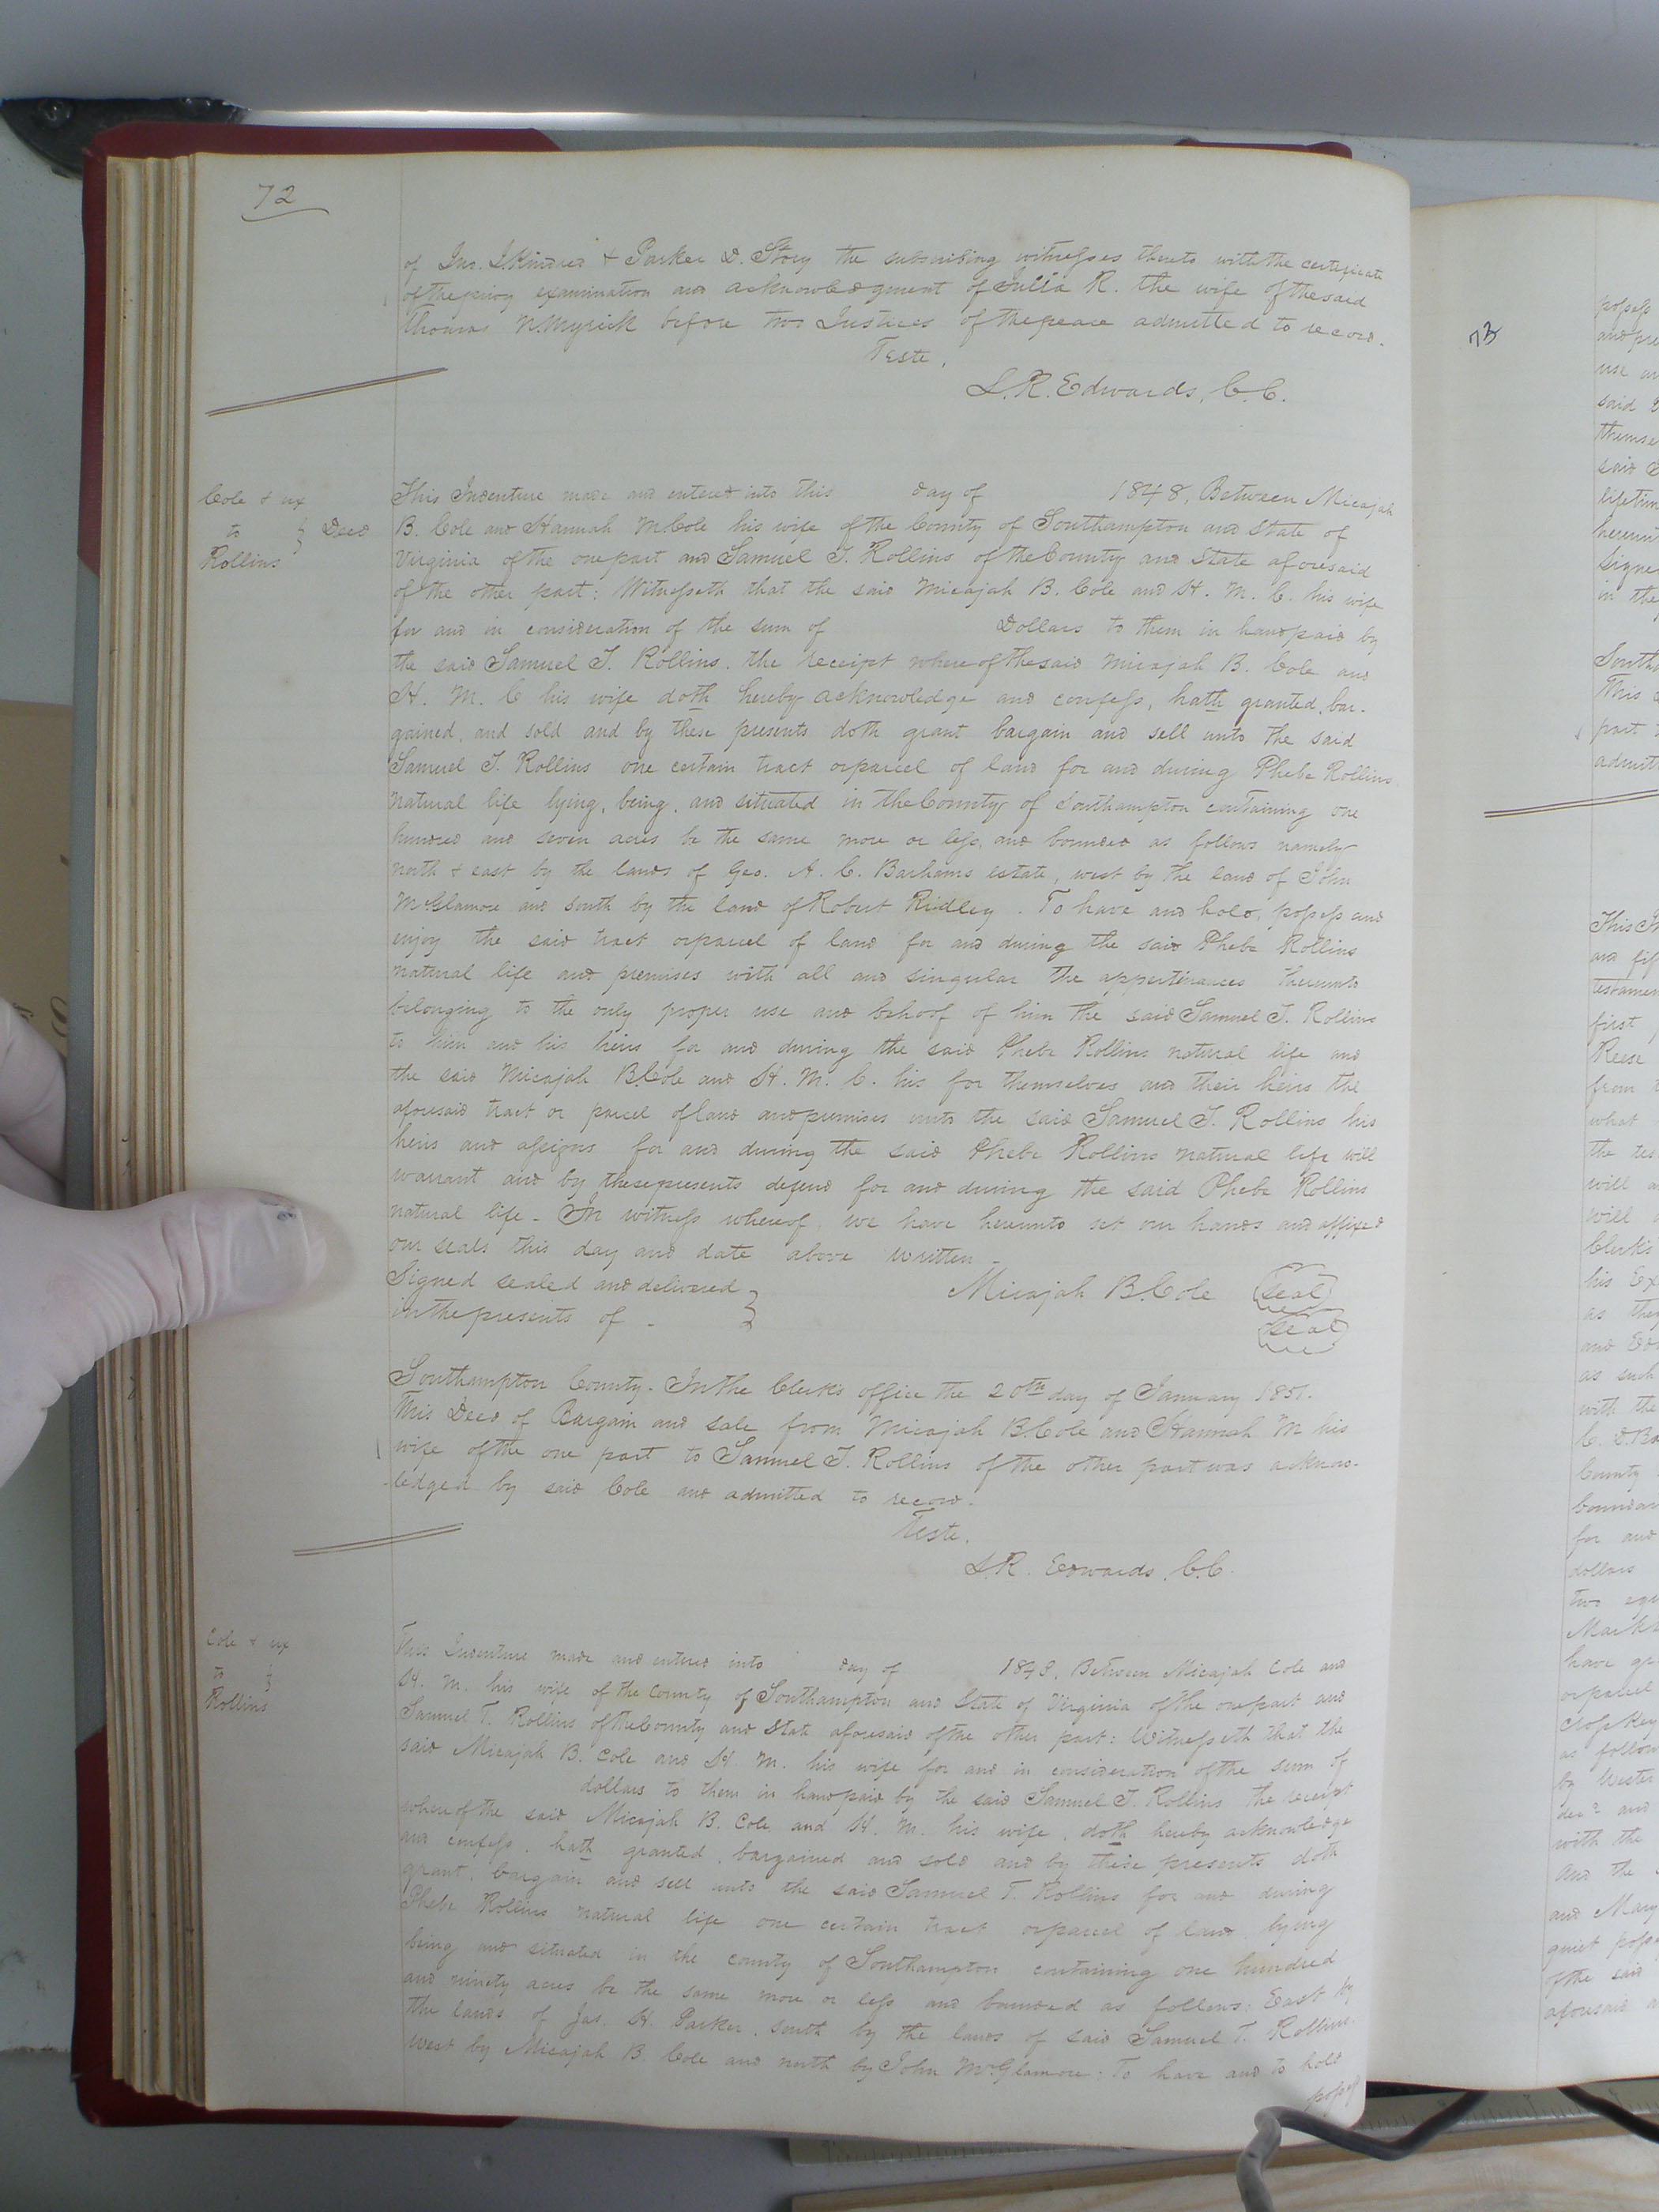 72
of Jno. J. Kindred & Parker D. Story the subscribing witnesses thereto with the certificate
of the privy examination and acknowledgment of Julia R. the wife of the said
Thomas N. Myrick before two Justices of the peace admitted to record.
Teste,
L. R. Edwards, C. C.
Cole & ux
to } Deed
Rollins
This Indenture made and entered into this day of 1848, Between Micajah
B. Cole and Hannah M. Cole his wife of the County of Southampton and State of
Virginia of the one part and Samuel T. Rollins of the County and State aforesaid
of the other part: Witnesseth that the said Micajah B. Cole and H. M. C. his wife
for and in consideration of the sum of Dollars to them in hand paid by
the said Samuel T. Rollins, the receipt whereof the said Micajah B. Cole and
H. M. C his wife doth hereby acknowledge and confess, hath granted, bar-
gained, and sold and by these presents doth grant bargain and sell unto the said
Samuel T. Rollins one certain tract or parcel of land for and during Phebe Rollins
natural life lying, being, and situated in the County of Southampton containing one
hundred and seven acres be the same more or less, and bounded as follows namely
north & east by the lands of Geo. A. C. Barhams estate, west by the land of John
McGlamore and South by the land of Robert Ridley. To have and hold, possess and
enjoy the said tract or parcel of land for and during the said Phebe Rollins
natural life and premises with all and singular the appertinances thereunto
belonging to the only proper use and behoof of him the said Samuel T. Rollins
to him and his heirs for and during the said Phebe Rollins natural life and
the said Micajah B. Cole and H. M. C. his for themselves and their heirs the
aforesaid tract or parcel of land and premises unto the said Samuel T. Rollins his
heirs and assigns for and during the said Phebe Rollins natural life will
warrant and by these presents defend for and during the said Phebe Rollins
natural life - In witness whereof, we have hereunto set our hands and affixed
our seals this day and date above written -
Signed sealed and delivered } Micajah B. Cole (seal)
in the presents of - (seal)
Southampton County. In the Clerk's office the 20th day of January 1851.
This Deed of Bargain and sale from Micajah B. Cole and Hannah M his
wife of the one part to Samuel T. Rollins of the other part was acknow-
ledged by said Cole and admitted to record.
Teste.
L. R. Edwards, C. C.
Cole & ux
to }
Rollins
This Indenture made and entered into day of 1848, Between Micajah Cole and
H. M. his wife of the County of Southampton and State of Virginia of the one part and
Samuel T. Rollins of the County and State aforesaid of the other part: Witnesseth that the
said Micajah B. Cole and H. M. his wife for and in consideration of the sum of
dollars to them in hand paid by the said Samuel T. Rollins the receipt
whereof the said Micajah B. Cole and H. M. his wife, doth hereby acknowledge
and confess, hath granted, bargained and sold and by these presents doth
grant, bargain and sell unto the said Samuel T. Rollins for and during
Phebe Rollins natural life one certain tract or parcel of land lying
being and situated in the county of Southampton containing one hundred
and ninety acres be the same more or less and bounded as follows: East by
the lands of Jas. H. Parker, south by the lands of said Samuel T. Rollins
west by Micajah B. Cole and north by John McGlamore: To have and to hold
possess
73
possess
use an
said
themse
said
lifetim
hereunt
signe
in the
South
This
part
admitt
This In
and fif
testamen
first
Reese
from
what
the tes
will
will
Clerks
his Ex
as they
and
as such
with the
County
boundar
for and
dollars
two equ
have gr
or parcel
as follow
by
and
with the
and the
and Mary
quiet poss
of the said
aforesaid